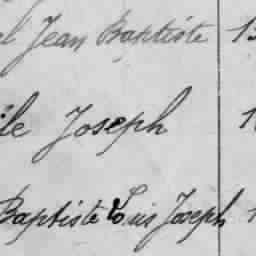 Jean Baptiste
Joseph
Baptiste Louis Joseph